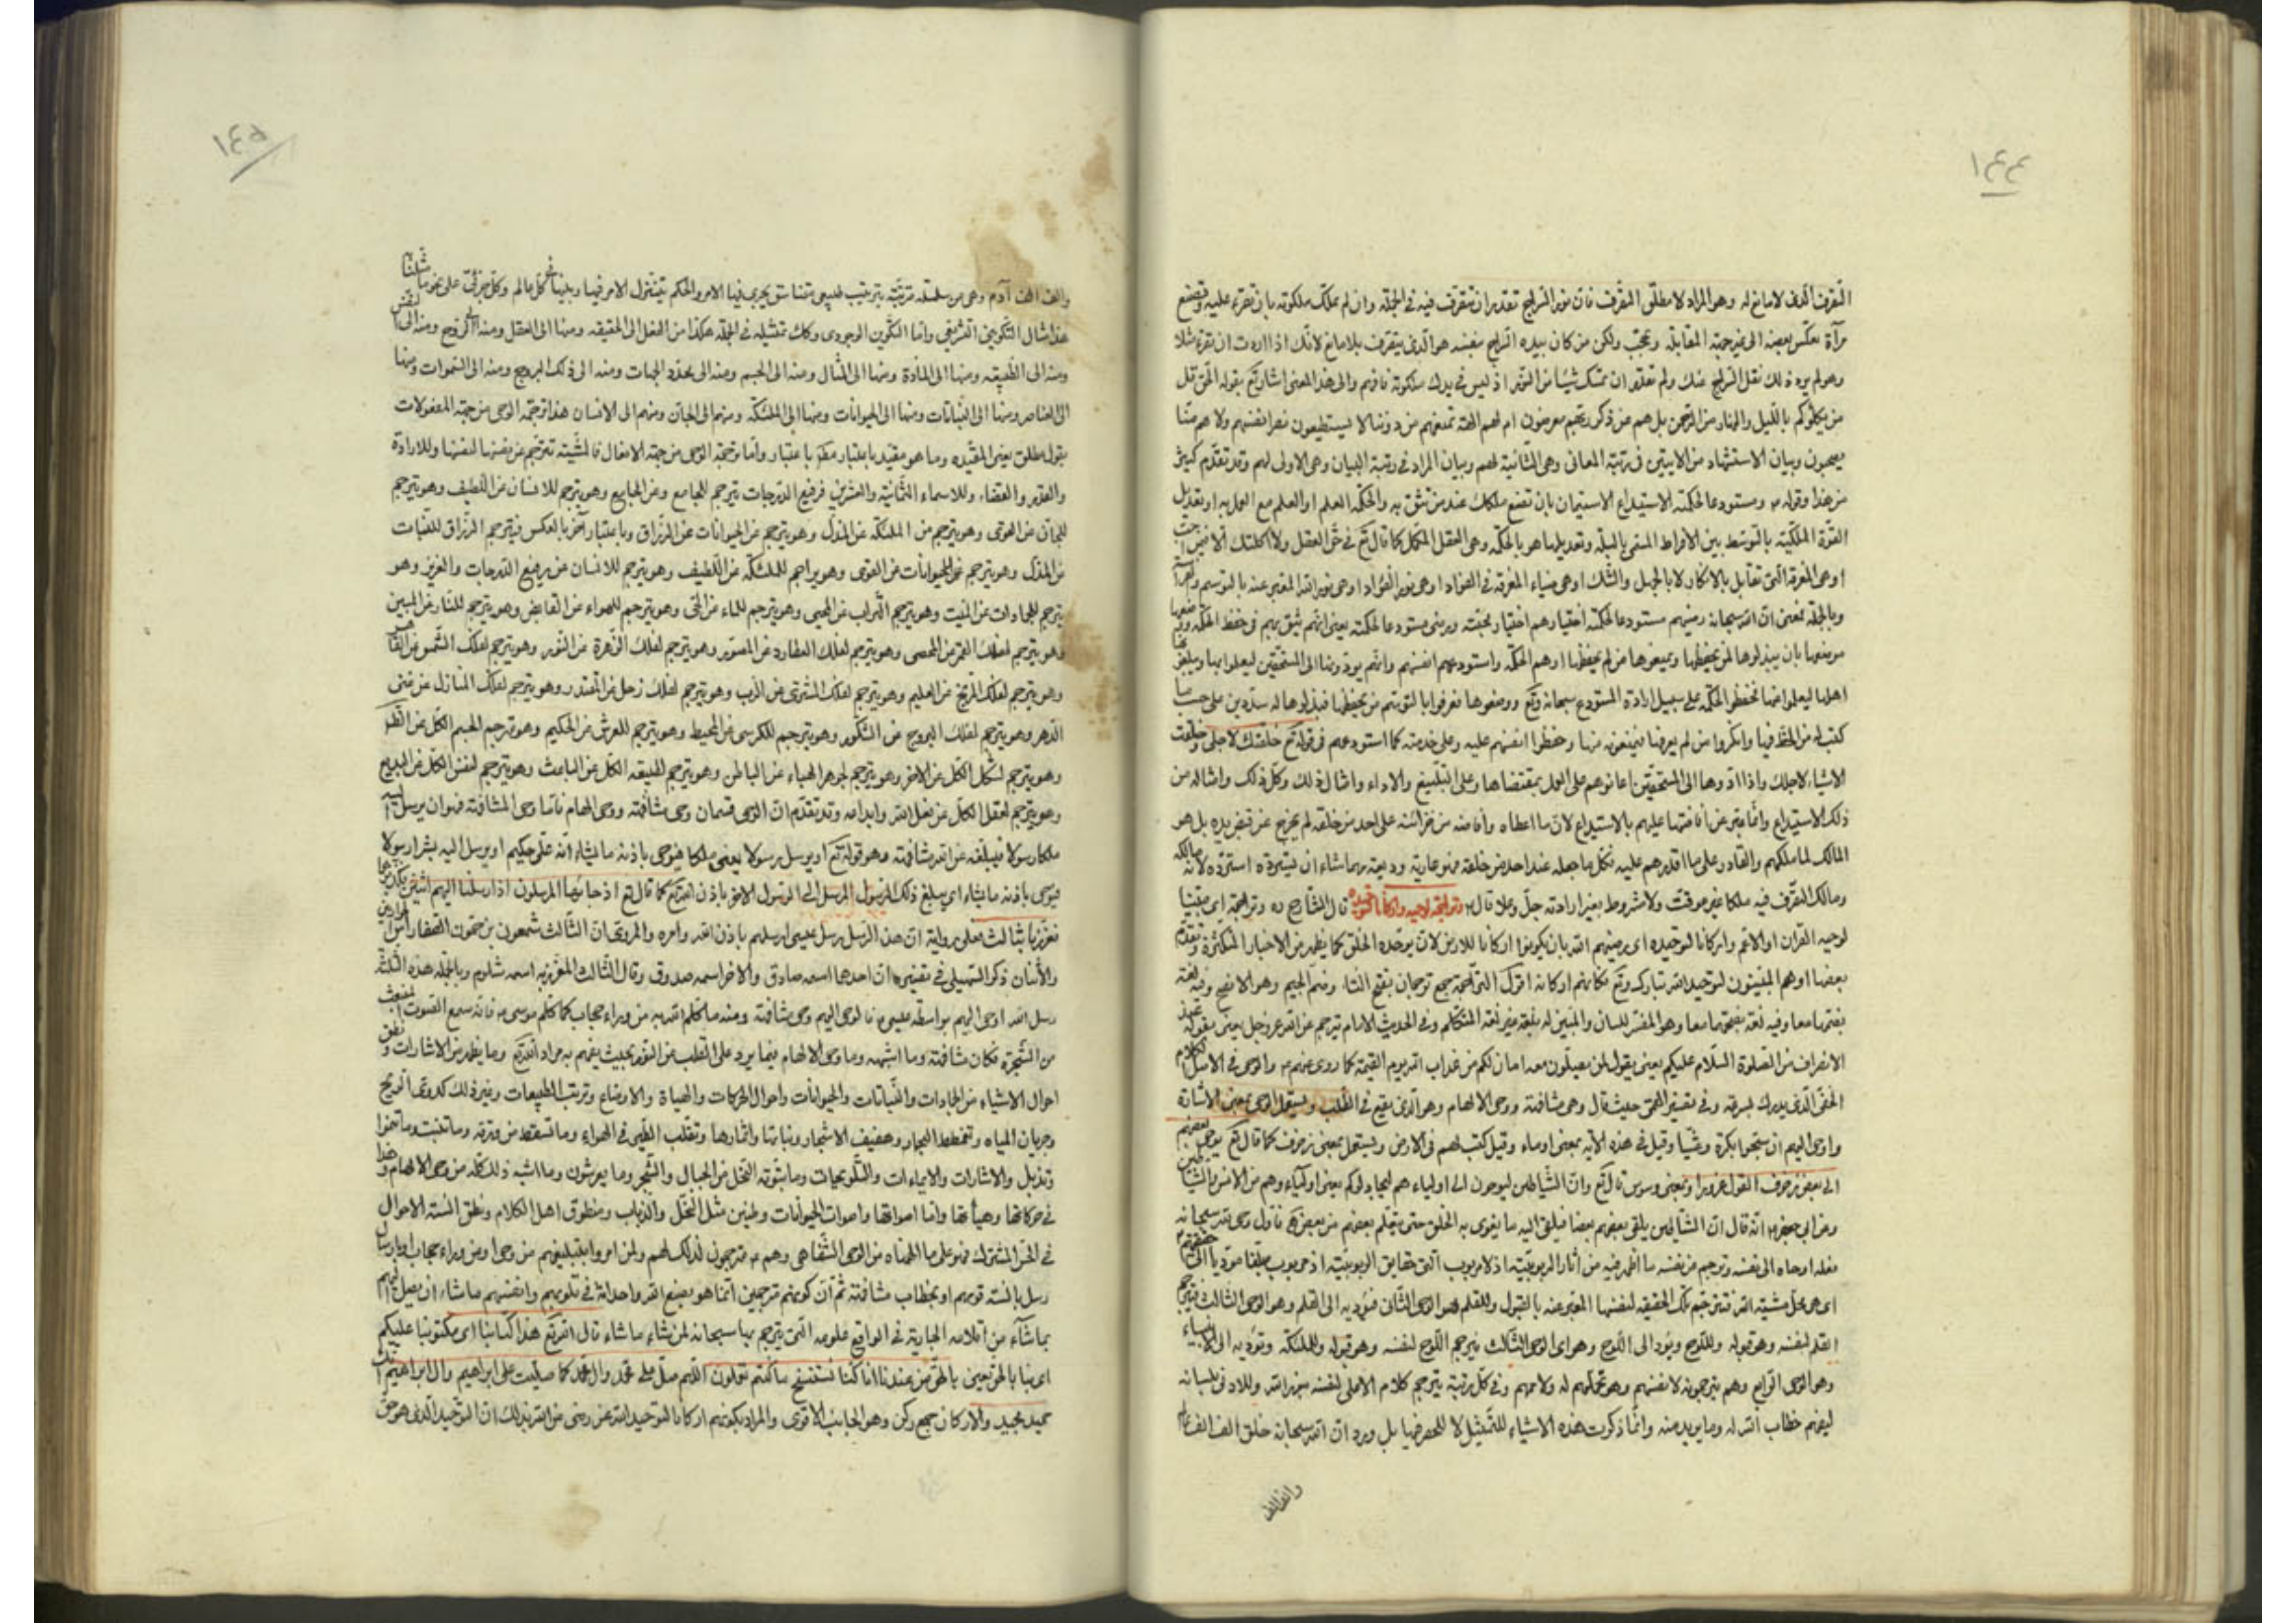 ١٤٤
التصرف الذي لا مانع له وهو المراد لا مطلق التصرف فان نور السراج تقدر ان تتصرف فيه في الجملة وان لم تملك ملكوته بان تقرء عليه وتضع
مرآة تعكس بعضه الى غير جهة المقابلة وتحجب ولكن من كان بيده السراج بنفسه هو الذي يتصرف بلا مانع لانك اذا اردت ان تقرء مثلا
وهو لم يرد ذلك نقل السراج عنك ولم تقدر ان تمسك شيئا من النور اذ ليس في يدك ملكوته فافهم والى هذا المعنى اشار تع بقوله الحق قل
من يكلؤكم بالليل والنهار من الرحمن بل هم عن ذكر ربهم معرضون ام لهم آلهة تمنعهم من دوننا لا يستطيعون نصر انفسهم ولا هم منا
يصحبون وبيان الاستشهاد من الآيتين في رتبة المعاني وهي الثانية لهم وبيان المراد في رتبة البيان وهي الاولى لهم وقد تقدم كثير
من هذا وقوله ع ومستودعا لحكمته الاستيداع الاستيمان بان تضع ملكك عند من تثق به والحكمة العلم او العلم مع العمل به او تعديل
القوة الملكية بالتوسط بين الافراط المسمى بالبله وتعديلها هو بالحكمة وهي العقل المكمل كما قال تع في حق العقل ولا اكملتك الا فيمن احب
او هي المعرفة التي تقابل بالانكار لا بالجهل والشك او هي ضياء المعرفة في الفؤاد او هي نور الفؤاد او هي نور الله المعبر عنه بالتوسم
وبالجملة بمعنى ان الله سبحانه رضيهم مستودعا لحكمته اختيارهم اختيار محبته ورضى مستودعا لحكمته يعني انهم يثق بهم في حفظ الحكمة
موضعها بان يبذلوها لمن يحفظها ويمنعوها من لم يحفظها اوهم الحكمة واستودعهم انفسهم وانهم يؤدونها الى المستحقين ليعملوا بها
اهلها ليعملوا فحفظوا الحكمة على سبيل ارادة المستودع سبحانه وتع ووضعوها فعرفوا بالتوسم من يحفظها فبذلوها له
كتب له من الحظ فيها وانكروا من لم يرضها فيمنعونه منها وحفظوا انفسهم عليه وعلى خدمته كما استودعهم في قوله تع خلقتك لاجلي وخلقت
الاشياء لاجلك واذا ادوها الى المستحقين اعانوهم على العمل بمقتضاها وعلى التبليغ والاداء وامثال ذلك وكل ذلك وامثاله من
ذلك الاستيداع وانما عبر عن افاضتها عليهم بالاستيداع لان ما اعطاه وافاضه من خزائنه على احد من خلقه لم يخرج عن قبض يده بل هو
المالك لما ملكهم والقادر على ما اقدرهم عليه فكل ما جعله عند احد من خلقه فهو عارية وديعة ربما شاء ان يسترده استرده لانه مالكه
ومالك التصرف فيه ملكا غير موقت ولا مشروط بغير ارادته جل وعلا قال ع وتراجمة لوحيه واركانا لتوحيده قال الشارح ره وتراجمة اي مبينا
لوحيه القرآن او الاعم واركانا لتوحيده اي رضيهم الله بان يكونوا اركانا للارض لان يوحده الخلق كما يظهر من الاخبار المتكثرة وتقدم
بعضها او هم المبينون لتوحيد الله تبارك وتع فكانهم اركانه اقول التراجمة جمع ترجمان بفتح التاء وضم الجيم وهو الافصح وفيه لغة
بضمهما معا وفيه لغة بفتحهما معا وهو المفسر للسان والمبين له بلغة غير لغة المتكلم وفي الحديث الامام يترجم عن الله عز وجل يعني بقوله عند
الانصراف من الصلوة السلام عليكم يعني يقول لمن يصلون معه امان لكم من عذاب الله يوم القيمة كما روى عنهم ع والوحي في الاصل الكلام
الخفي الذي يدرك بسرعة وفي تفسير القمي حيث قال وحي مشافهة ووحي الالهام وهو الذي يقع في القلب ويستعمل الوحي بمعنى الاشارة
واوحى اليهم ان سبحوا بكرة وعشيا وقيل في هذه الآية بمعنى اومأء وقيل كتب لهم في الارض ويستعمل بمعنى زخرف كما قال تع يوحي بعضهم
الى بعض زخرف القول غرورا وبمعنى وسوس قال تع وان الشياطين ليوحون الى اولياءهم ليجادلوكم يعني اولياءهم من الانس والشياطين
وعن ابي جعفر ع انه قال ان الشياطين يلقى بعضهم بعضا فيلقى اليه ما يغوى به الخلق حتى يتعلم بعضهم من بعض فاول وحي لله سبحانه
فعله اوحاه الى نفسه وترجم من نفسه ما اظهر فيه من آثار الربوبية اذ لا مربوب التي حقايق الربوبية اذ مربوب
اي هي محل مشية الله فتترجم تلك الحقيقة لنفسها المعبر عنه بالقبول وللقلم وهو الوحي الثاني فيؤديه الى القلم وهو الوحي الثالث فيترجم
القلم لنفسه وهو قبوله وللوح ويؤدى الى اللوح وهو اي الوحي الثالث يترجم اللوح لنفسه وهو قبوله وللملئكة ويؤديه الى الانبياء
وهو الوحي الرابع وهم يترجمونه لانفسهم وهو تحملهم له ولاممهم وفي كل رتبة يترجم كلام الاعلى لنفسه وللادنى بلسانه
ليفهم خطاب الله له وما يريد منه وانما ذكرت هذه الاشياء للتمثيل لا للحصر فيها بل ورد ان الله سبحانه خلق الف الف عالم
والف الف
١٤٥
والف الف آدم وهي من سلسلة مرتبة بترتيب طبيعي متناسق يجري فيها الامر والحكم يتنزل الامر فيها وبينها في كل عالم وكل جزئي على نحو ما مثلنا
هذا مثال التكويني التشريعي واما التكوين الوجودي وكك تمثيله في الجملة هكذا من الفعل الى الحقيقة ومنها الى العقل ومنه الى الروح ومنه الى النفس
ومنه الى الطبيعة ومنها الى المادة ومنها الى المثال ومنه الى الجسم ومنه الى محدد الجهات ومنه الى فلك البروج ومنه الى السموات ومنها
الى العناصر ومنها الى النباتات ومنها الى الحيوانات ومنها الى الملئكة ومنهم الى الجان ومنهم الى الانسان هذا ترجمة الوحي من جهة المعقولات
بقول مطلق يعني المقيدة وما هو مقيد باعتبار مطلق باعتبار واما ترجمة الوحي من جهة الافعال فالمشية تترجم عن نفسها لنفسها وللارادة
والقدر والقضاء وللاسماء الثمانية والعشرين فرفيع الدرجات يترجم للجامع وعن الجامع وهو يترجم للانسان عن اللطيف وهو يترجم
للجان عن القوى وهو يترجم عن الملئكة عن المذل وهو يترجم عن الحيوانات عن الرزاق وباعتبار آخر بالعكس فيترجم الرزاق للنبات
عن المذل وهو يترجم للحيوانات عن القوى وهو يترجم للملئكة عن اللطيف وهو يترجم للانسان عن رفيع الدرجات والعزيز وهو
يترجم للجمادات عن المميت وهو يترجم التراب عن المحيى وهو يترجم للماء عن الحي وهو يترجم للهواء عن القابض وهو يترجم للنار عن المبين
وهو يترجم لفلك القمر عن المحصى وهو يترجم لفلك العطارد عن المصور وهو يترجم لفلك الزهرة عن النور وهو يترجم لفلك الشمس عن القاهر
وهو يترجم لفلك المريخ عن العليم وهو يترجم لفلك المشترى عن الرب وهو يترجم لفلك زحل عن المقتدر وهو يترجم لفلك المنازل عن غنى
الدهر وهو يترجم لفلك البروج عن الشكور وهو يترجم للكرسي عن المحيط وهو يترجم للعرش عن الحكيم وهو يترجم الجسم الكل عن الظاهر
وهو يترجم لشكل الكل عن الآخر وهو يترجم لجوهر الهباء عن الباطن وهو يترجم للطبيعة الكل عن الباعث وهو يترجم لنفس الكل عن البديع
وهو يترجم لعقل الكل عن فعل الله وابداعه وقد تقدم ان الوحي قسمان وحي مشافهة ووحي الهام فاما وحي المشافهة فهو ان يرسل اليه
ملكا رسولا فيبلغه عن الله مشافهة وهو قوله تع او يرسل رسولا يعني ملكا فيوحى باذنه ما يشاء انه على حكيم او يرسل اليه بشرا رسولا
فيوحى باذنه ما يشاء اي يبلغ ذلك الرسول المرسل الى الرسول الآخر باذن الله تع كما قال تع اذ جاءها المرسلون اذ ارسلنا اليهم اثنين فكذبوهما
فعززنا بثالث فعلى رواية ان هذه الرسل رسل عيسى ارسلهم باذن الله وامره والمروى ان الثالث شمعون بن حمون الصفا رأس الحواريين
والاثنان ذكر السهيلي في تفسيره ان احدهما اسمه صادق والآخر اسمه صدوق وقال الثالث المعزز به اسمه شلوم وبالجملة هذه الثلثة
رسل الله اوحى اليهم بواسطة عيسى ع فالوحي اليهم وحي مشافهة ومنه ما كلم الله به من وراء حجاب كما كلم موسى ع فانه سمع الصوت المنبعث
من الشجرة فكان مشافهة وما اشبهه وما وحى الالهام فيما يرد على القلب من النور بحيث يفهم به مراد الله تع وما يظهر من الاشارات ونطق
احوال الاشياء من الجمادات والنباتات والحيوانات واحوال الحركات والهيأة والاوضاع وترتب الطبيعات وغير ذلك كدوى الريح
وجريان المياه وتغطمط البحار وحفيف الاشجار ونباتها واثمارها وتقلب الطير في الهواء وما تسقط من ورقة وما تنبت وما تنموا
وتذبل والاشارات والايماءات والتلويحات وما بثوته النحل من الجبال والشجر وما يعرشون وما اشبه ذلك كله من وحي الالهام وهذا
في حركاتها وهيأتها واما اصواتها واصوات الحيوانات وطنين مثل النحل والذباب ومنطوق اهل الكلام ونطق السنة الاحوال
في الحس المشترك فهو على ما الهمناه من الوحي الشفاهي وهم ع مترجمون لذلك لهم ولمن امروا بتبليغهم من وحي او من وراء حجاب او بارسال
رسل بالسنة قومهم او بخطاب مشافهة ثم ان كونهم مترجمين انما هو بصنع الله واحداثه في قلوبهم وانفسهم ما شاء ان يصل اليهم
بما شاء من اقلامه الجارية في الواقع علومه التي يترجم بها سبحانه لمن شاء ما شاء قال الله تع هذا كتابنا اي مكتوبنا عليكم
اي بنا بالحق يعني بالحق من عندنا انا كنا نستنسخ ما كنتم تعملون اللهم صل على محمد وال محمد كما صليت على ابراهيم وال ابراهيم انك
حميد مجيد والاركان جمع ركن وهو الجانب الاقوى والمراد بكونهم اركانا لتوحيد الله عز وجل رضى من الله بذلك ان التوحيد الذي هو حق